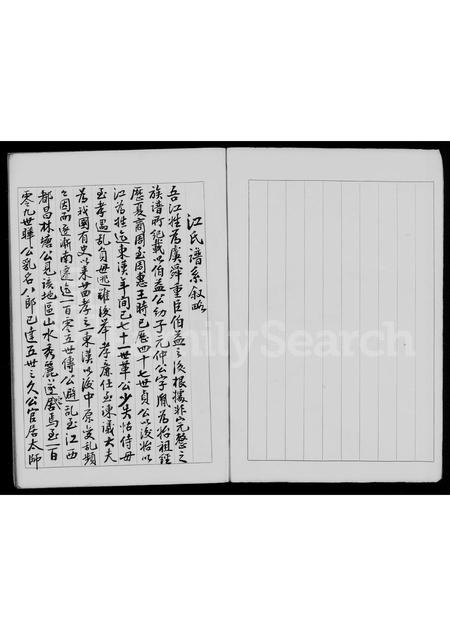 江氏譜系叙略
吾江姓為虞舜重臣伯益之後根據非完整之
族譜所記載以伯益公幼子元仲公字胤為始祖經
歷夏商周至周惠王時已歷四十七世貞公以後始以
江為姓迄東漢年間已七十一世革公少失怙侍母
至孝遇亂負母逃難後舉孝廉任至諫議大夫
為我國有史以來廿四孝之東漢以後中原變亂頻
々因而逐漸南遷迨一百零五世傳公避亂至江西
都昌林塘公見該地區山水秀麗遂居焉至一百
零九世曄公乳名八郎已達五世之久公官居太師
FamilySearch